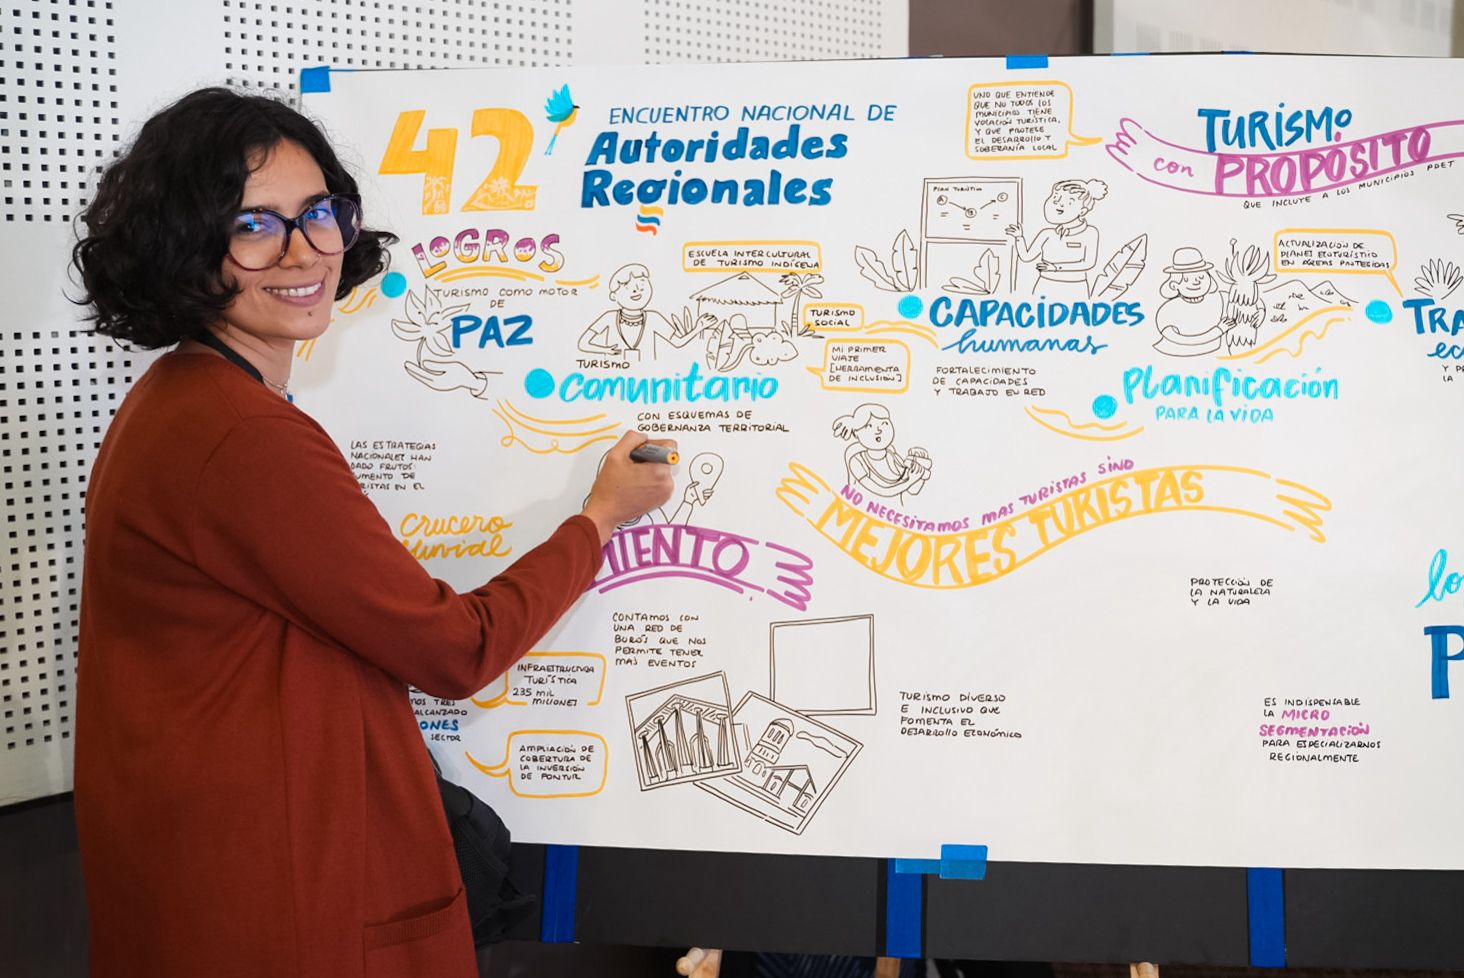 42
ENCUENTRO NACIONAL DE
Autoridades
Regionales
LOGROS
TURISMO COMO MOTOR
DE
PAZ
TURISMO
Comunitario
CON ESQUEMAS DE
GOBERNANZA TERRITORIAL
ESCUELA INTERCULTURAL
DE TURISMO INDÍGENA
TURISMO
SOCIAL
MI PRIMER
VIAJE
[HERRAMIENTA
DE INCLUSIÓN]
UNO QUE ENTIENDE
QUE NO TODOS LOS
MUNICIPIOS TIENE
VOCACIÓN TURÍSTICA,
Y QUE PROTEGE
EL DESARROLLO Y
SOBERANÍA LOCAL
TURISMO
con PROPÓSITO
QUE INCLUTE A LOS MUNICIPIOS PDET
PLAN TURÍSTICO
CAPACIDADES
humanas
FORTALECIMIENTO
DE CAPACIDADES
Y TRABAJO EN RED
ACTUALIZACIÓN DE
PLANES ECOTURÍSTICO
EN ÁREAS PROTEGIDAS
Planificación
PARA LA VIDA
TRA
ec
Y P
LA
LAS ESTRATEGIAS
NACIONALES HAN
DADO FRUTOS:
UMENTO DE
RISTAS EN EL
Crucero
fluvial
MIENTO
NO NECESITAMOS MAS TURISTAS SINO
MEJORES TURISTAS
CONTAMOS CON
UNA RED DE
BURÓS QUE NOS
PERMITE TENER
MAS EVENTOS
INFRAESTRUCTURA
TURÍSTICA
235 MIL
MILLONES
MOS TRES
ALCANZADO
ONES
SECTOR
AMPLIACIÓN DE
COBERTURA DE
LA INVERSIÓN
DE FONTUR
TURISMO DIVERSO
E INCLUSIVO QUE
FOMENTA EL
DESARROLLO ECONÓMICO
PROTECCIÓN DE
LA NATURALEZA
Y LA VIDA
ES INDISPENSABLE
LA MICRO
SEGMENTACIÓN
PARA ESPECIALIZARNOS
REGIONALMENTE
lo
P